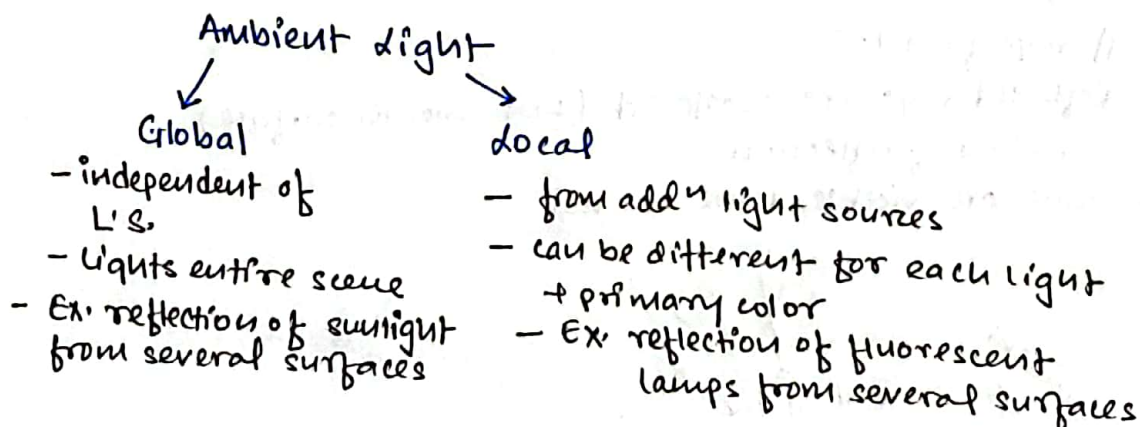 Ambient Light
Global
- independent of
L'S.
- Lights entire scene
- Ex. reflection of sunlight
from several surfaces
Local
- from addⁿ light sources
- can be different for each light
+ primary color
- Ex. reflection of fluorescent
lamps from several surfaces